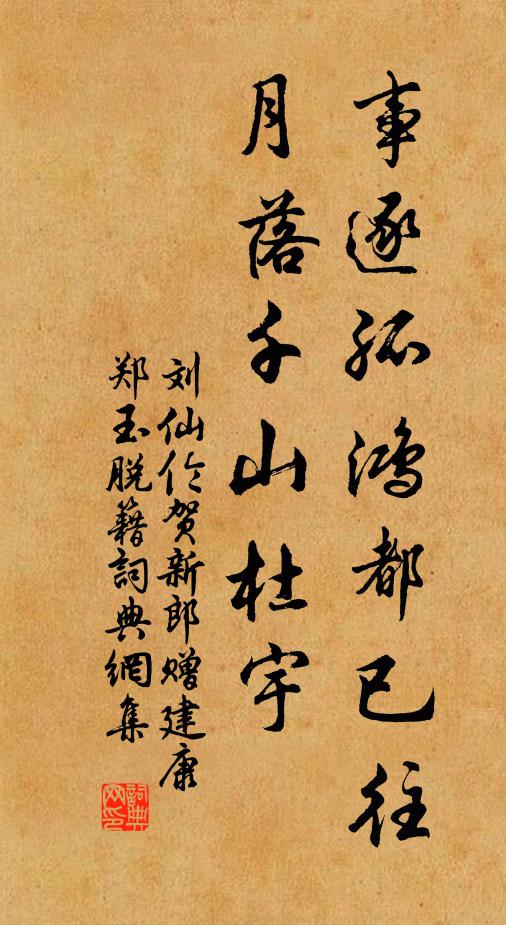 事逐孤鸿都已往
月落千山杜宇
刘仙伦贺新郎赠建康
郑玉脱籍詞典網集
詞典
网印